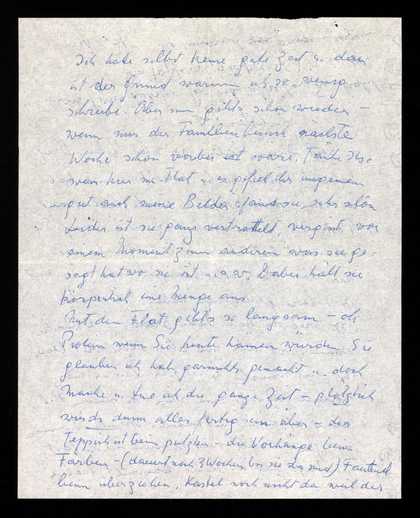 Ich habe selbst keine gute Zeit u. das
ist der Grund warum ich so wenig
schreibe. Aber nun gehts schon wieder –
wenn nur der Familienbesuch nächste
Woche schon vorbei wäre. Tante
war hier u. es gefiel ihr ungemein
gut auch meine Bilder fand sie sehr schön
Leider ist sie ganz vertrottelt, vergisst von
einem Moment zum anderen was sie ge-
sagt hat wo sie ist u.s.w. Dabei hält sie
körperlich eine Menge aus.
Mit dem Flat gehts so langsam – oh
wenn Sie heute kommen würden. Sie
glauben ich hab garnichts gemacht u. doch
mache u. tue ich die ganze Zeit – plötzlich
wird dann alles fertig sein aber – das
Teppich ist beim putzen – die Vorhänge beim
Färben – (dauert noch 3 Wochen bis sie da sind) Fauteuil
beim überziehen, Kastel noch nicht da weil der